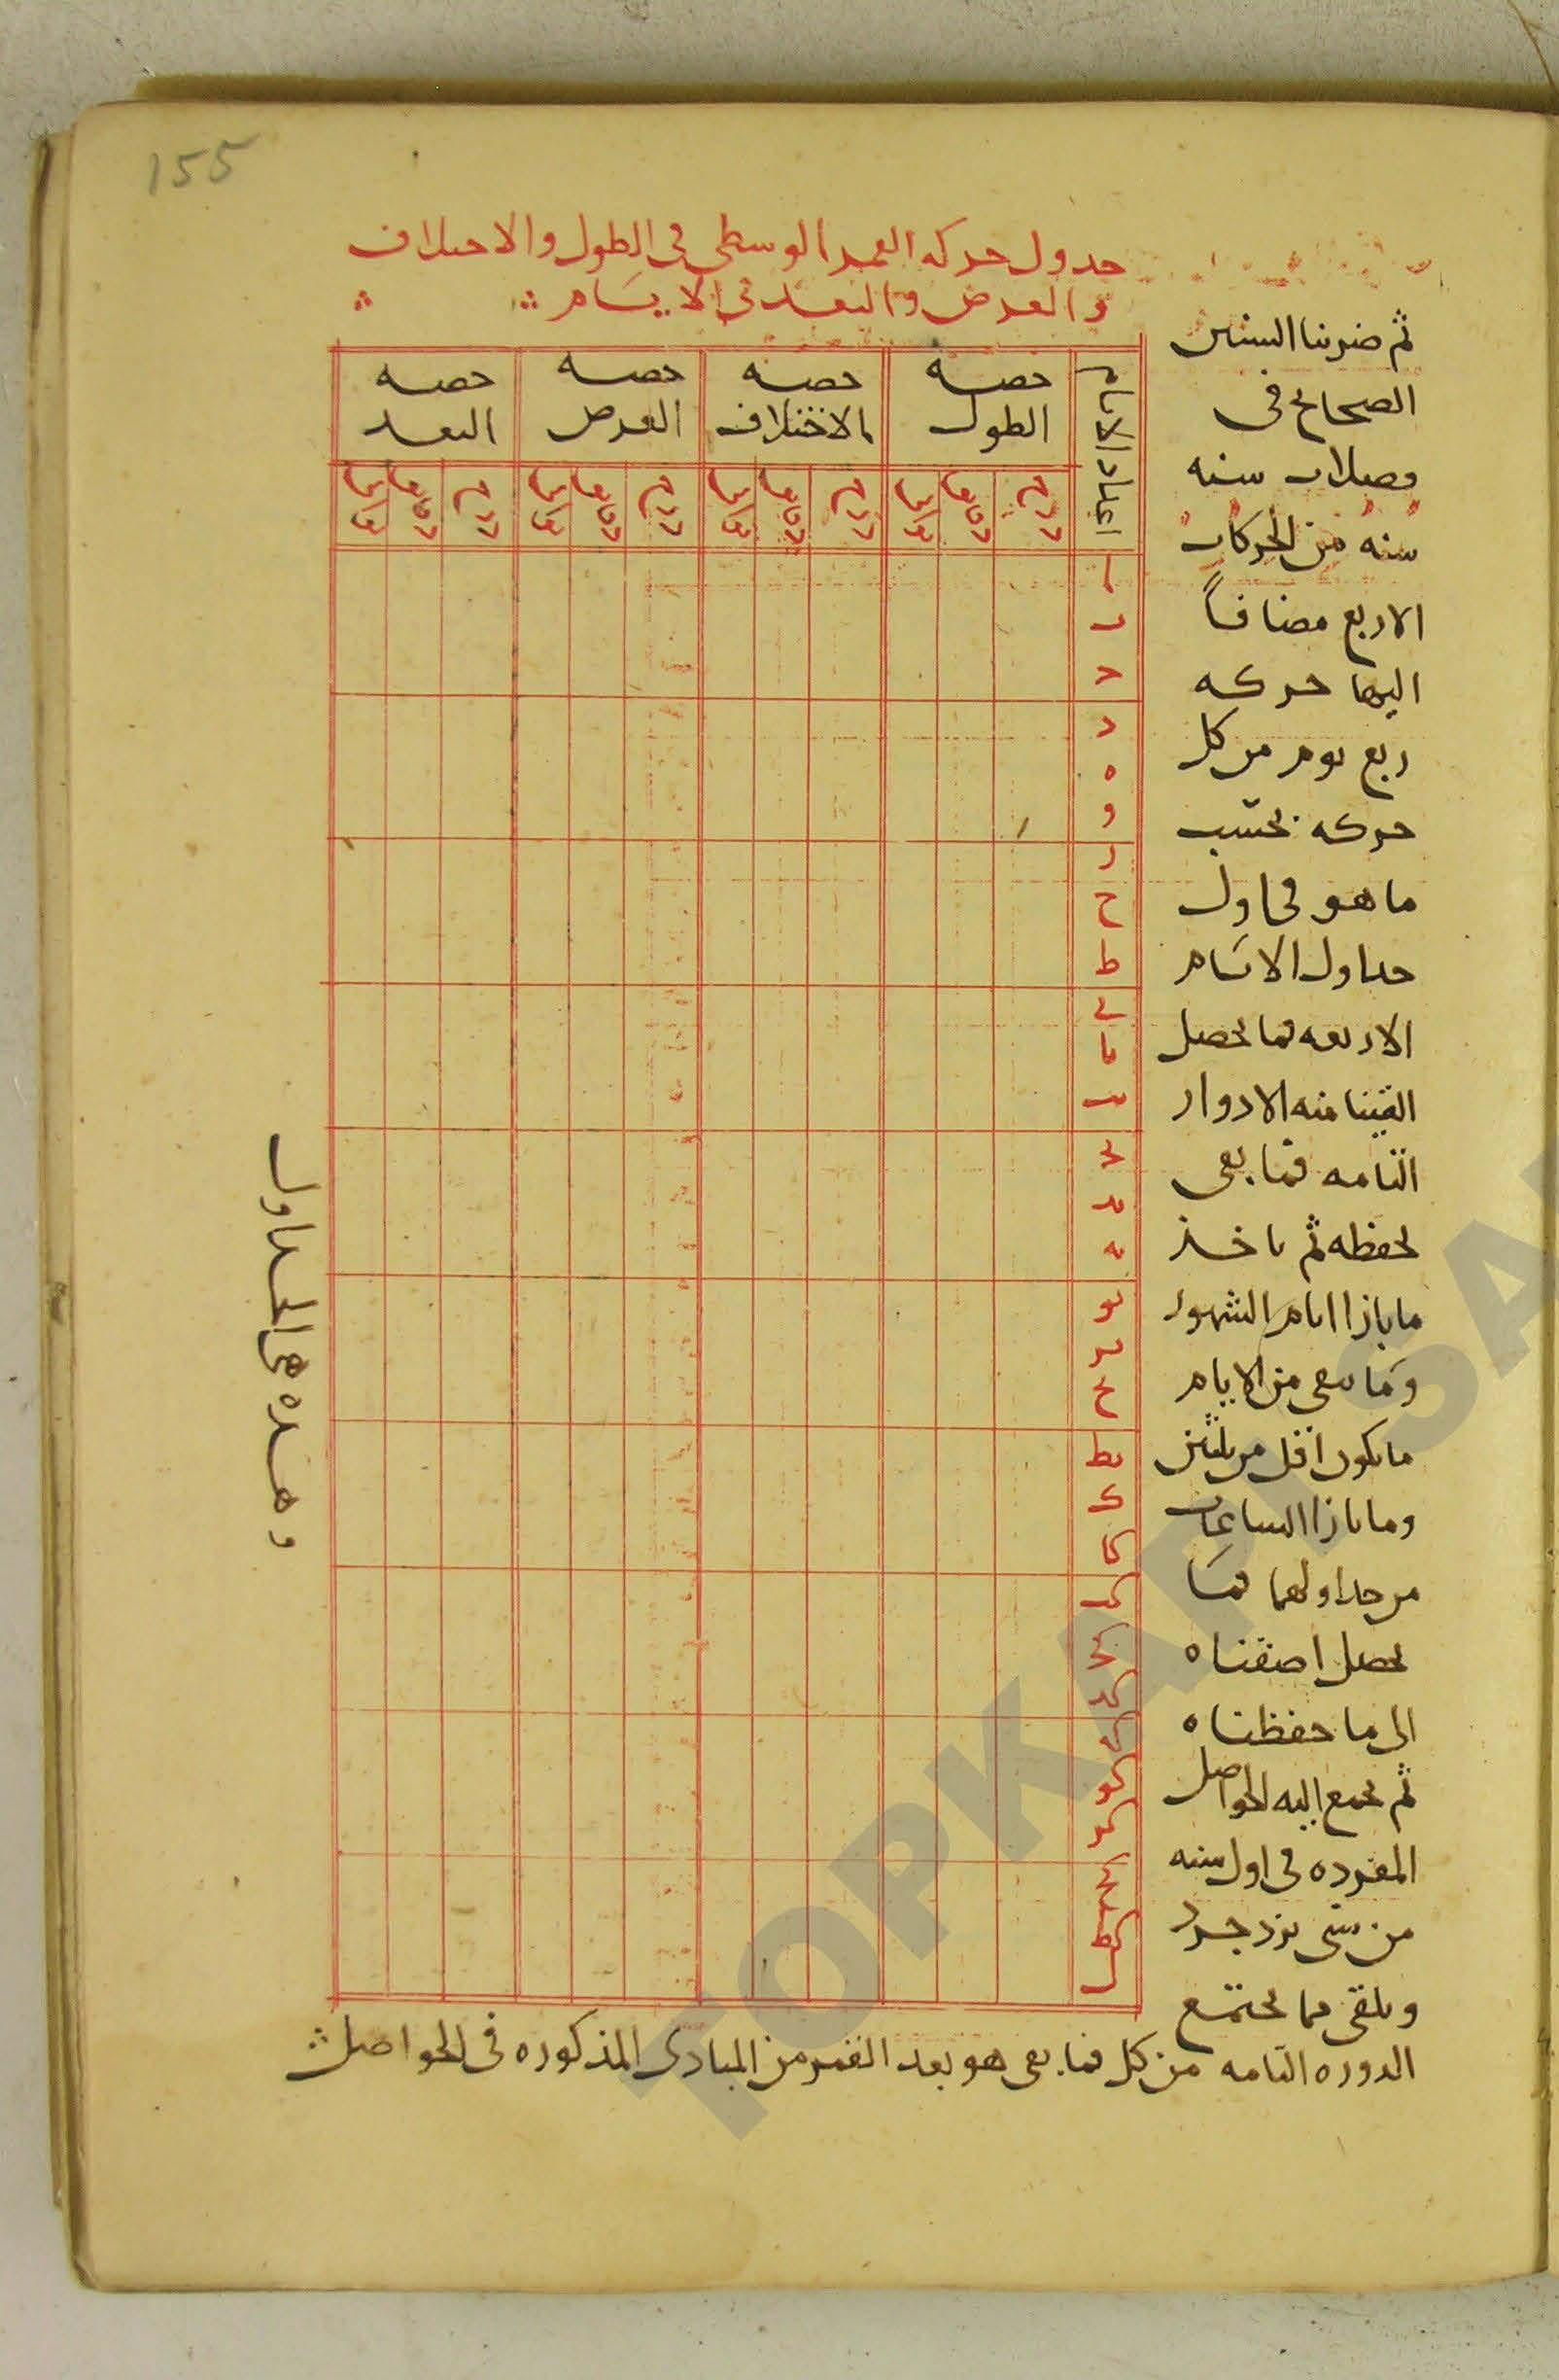 155
جدول حركه القمر الوسطى فى الطول والاختلاف
والعرض والبعد فى الايام
ثم ضربنا السنين
الصحاح فى
فضلات سنه
سنه من الحركات
الاربع مضافاً
اليها حركه
ربع يوم من كل
حركه بحسب
ما هو فى اول
جداول الايام
الاربعه فما يحصل
القينا منه الادوار
التامه فما بقى
نحفظه ثم ناخذ
ما بازا ايام الشهور
وما بقى من الايام
ما يكون اقل من ثلثين
وما بازا الساعات
من جداولهما فما
يحصل اضفناه
الى ما حفظناه
ثم نجمع اليه الحواصل
المفرده فى اول سنه
من سنى يزدجرد
ونلقى مما يجتمع
الدوره التامه من كل فما بقى هو بعد القمر من المبادى المذكوره فى الحواصل
اعداد الايام
حصه الطول
حصه الاختلاف
حصه العرض
حصه البعد
درج دقايق ثوانى درج دقايق ثوانى درج دقايق ثوانى درج دقايق ثوانى
ا
ب
ج
د
ه
و
ز
ح
ط
ى
يا
يب
يج
يد
يه
يو
يز
يح
يط
ك
كا
كب
كج
كد
كه
كو
كز
كح
كط
ل
وهذه هى الجداول
TOPKAPI SA